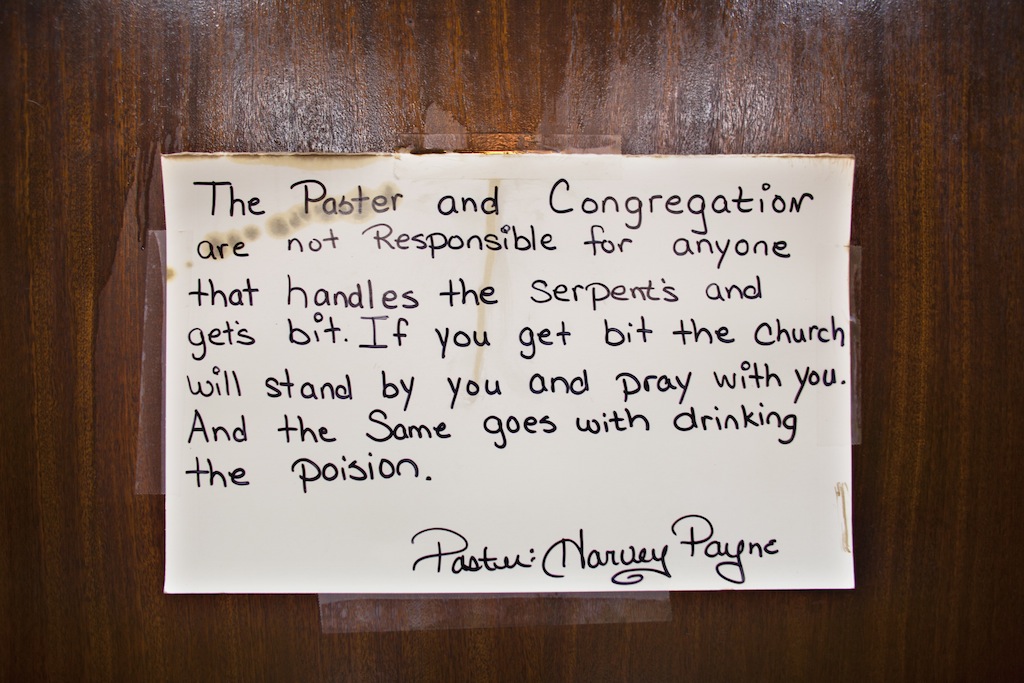 The Paster and Congregation
are not Responsible for anyone
that handles the serpent's and
get's bit. If you get bit the church
will stand by you and pray with you.
And the Same goes with drinking
the poision.
Paster: Harvey Payne